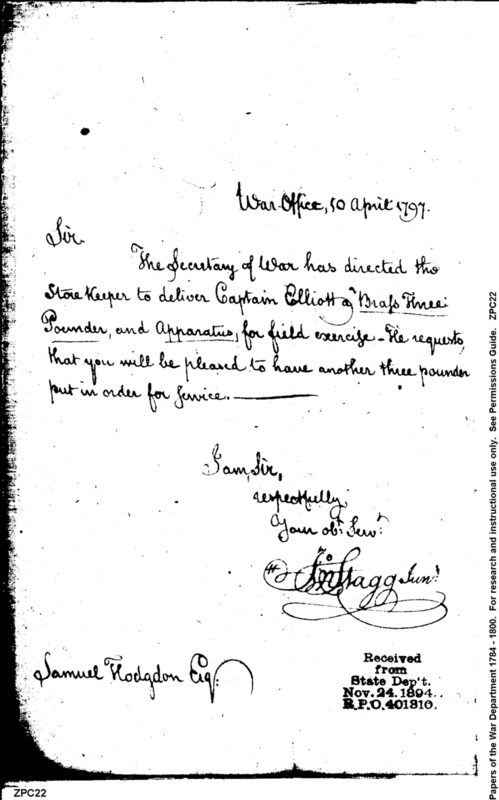 War Office, 10 April 1797.
Sir
The Secretary of War has directed the
Store Keeper to deliver Captain Elliott a Brass Three
Pounder, and Apparatus, for field exercise - He requests,
that you will be pleased to have another three pounder
put in order for Service.
I am, Sir,
respectfully,
Your obt. Servt.
Jno Stagg Junr.
Samuel Hodgdon Esq.
Received
from
State Dep't.
Nov. 24. 1894.
R.P.O. 401810.
Papers of the War Department 1784 - 1800. For research and instructional use only. See Permissions Guide. ZPC22
ZPC22